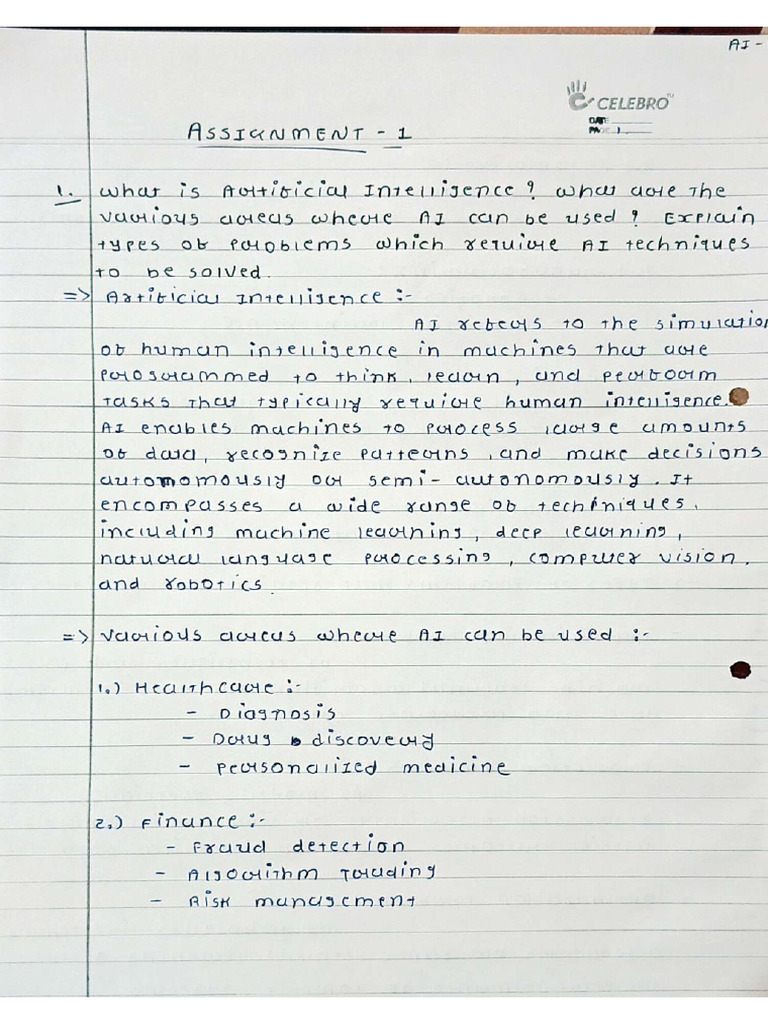 AI -
CELEBRO
DATE
PAGE 1
ASSIGNMENT - 1
1. What is Artificial Intelligence ? What are the
various areas where AI can be used ? Explain
types of problems which require AI techniques
to be solved.
=> Artificial Intelligence :-
AI refers to the simulation
of human intelligence in machines that are
programmed to think, learn, and perform
tasks that typically require human intelligence.
AI enables machines to process large amounts
of data, recognize patterns, and make decisions
automomously or semi-autonomously. It
encompasses a wide range of techniques,
including machine learning, deep learning,
natural language processing, computer vision,
and robotics.
=> Various areas where AI can be used :-
1.) Healthcare :-
- Diagnosis
- Drug discovery
- Personalized medicine
2.) Finance :-
- Fraud detection
- Algorithm Trading
- Risk management